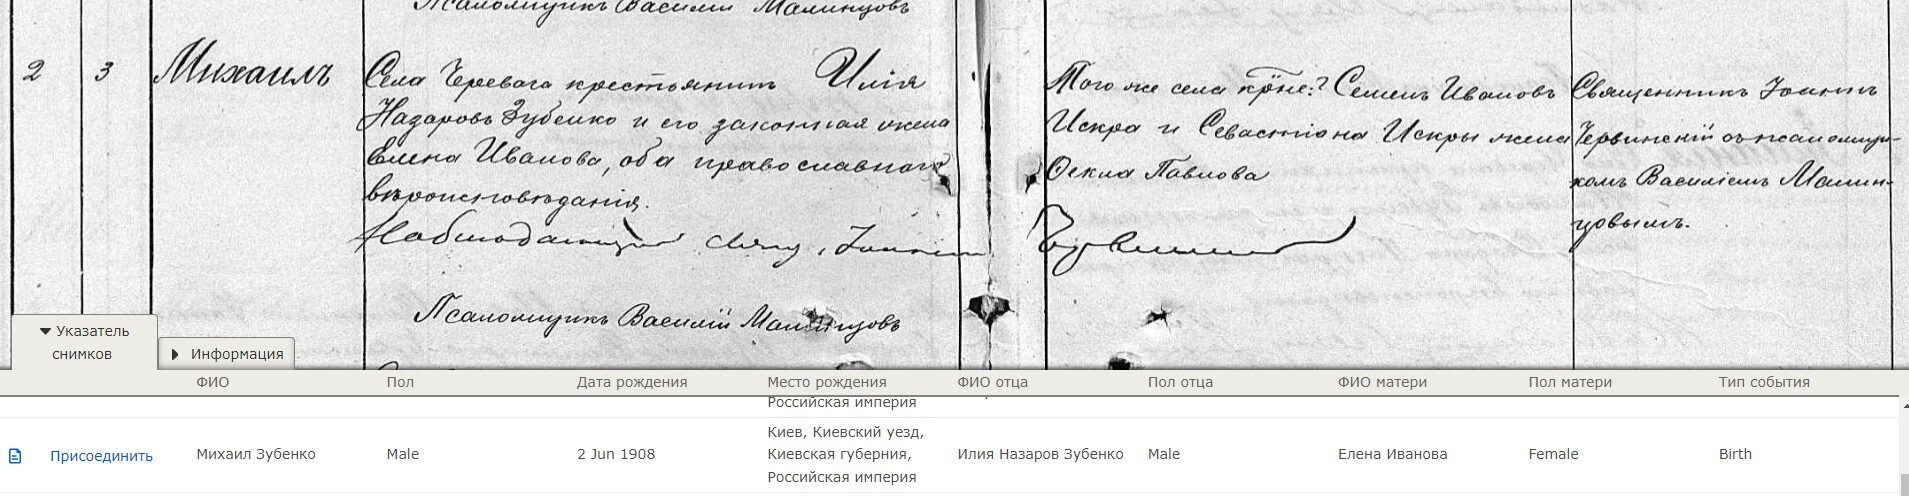 Псаломщикъ Василій Малинцовъ
2 3 Михаилъ
Села Черевача крестьянинъ Илія
Назаровъ Зубенко и его законная жена
Елена Иванова, оба православнаго
вѣроисповѣданія.
Наблюдающій свящ. Іоаннъ Червинскій
Псаломщикъ Василій Малинцовъ
Того же села крѣне: Семенъ Ивановъ
Искра и Севастіана Искры жена
Ѳекла Павлова
Священникъ Іоаннъ
Червинскій съ псаломщи-
комъ Василіемъ Малин-
цовымъ.
Указатель
снимков
Информация
ФИО Пол Дата рождения Место рождения ФИО отца Пол отца ФИО матери Пол матери Тип события
Российская империя
Присоединить Михаил Зубенко Male 2 Jun 1908 Киев, Киевский уезд,
Киевская губерния,
Российская империя Илия Назаров Зубенко Male Елена Иванова Female Birth